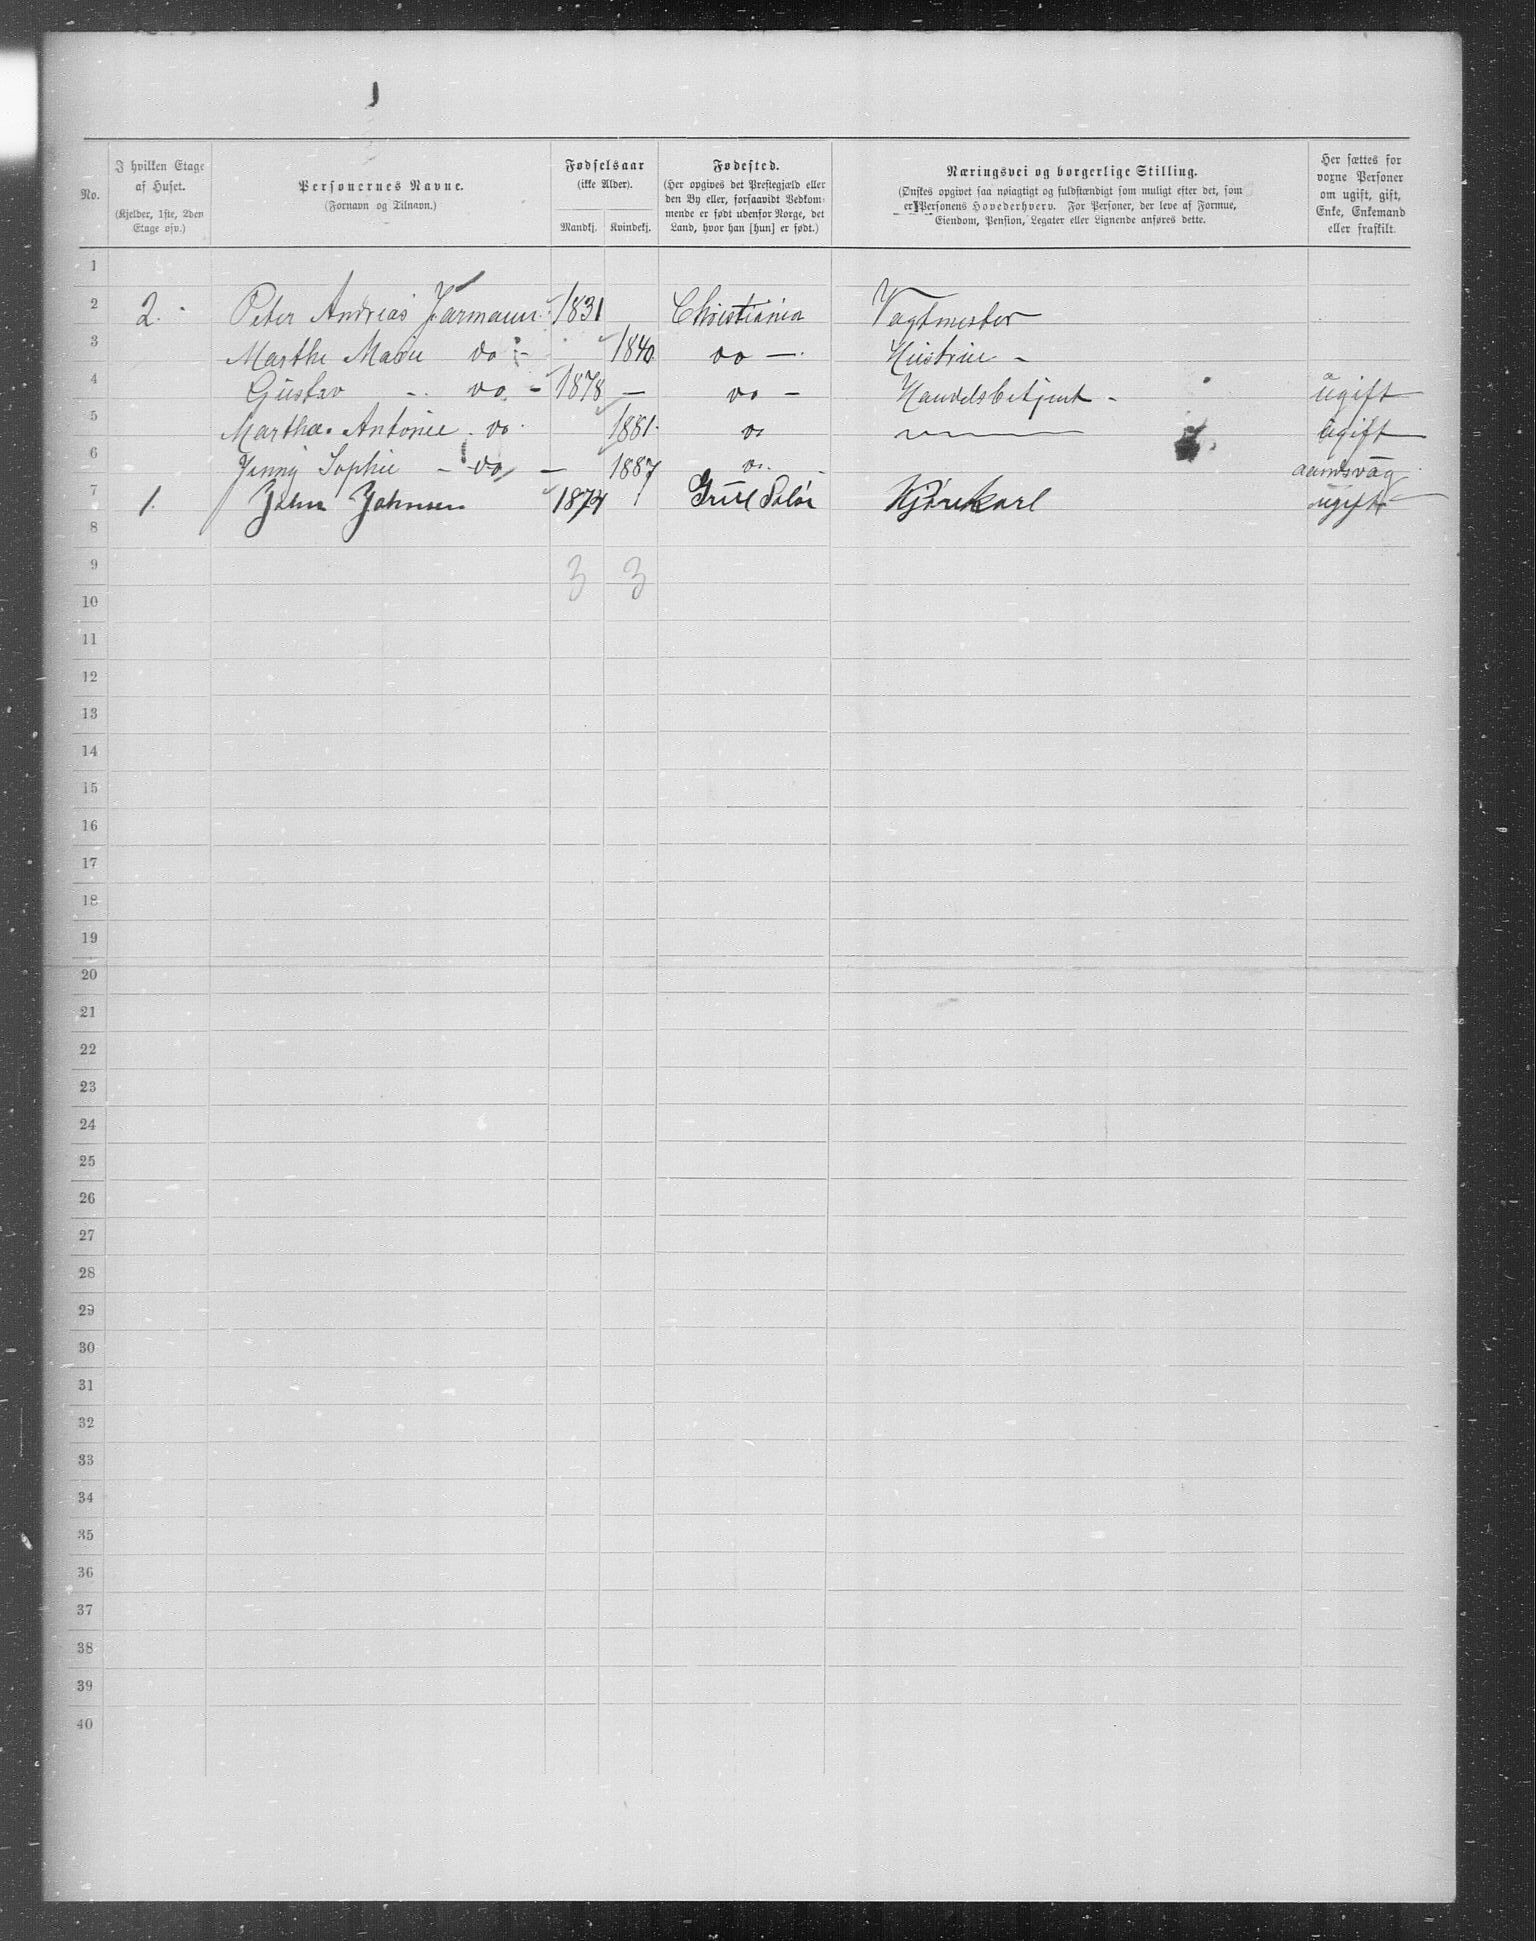 No.
I hvilken Etage af Huset.
(Kjelder, 1ste, 2den Etage osv.)
Personernes Navne.
(Fornavn og Tilnavn.)
Fødselsaar
(ikke Alder).
Mandkj. Kvindekj.
Fødested.
(Her opgives det Præstegjæld eller
den By eller, forsaavidt Vedkom-
mende er født udenfor Norge, det
Land, hvor han [hun] er født.)
Næringsvei og borgerlige Stilling.
(Ønskes opgivet saa nøiagtigt og fuldstændigt som muligt efter det, som
er Personens Hovederhverv. For Personer, der leve af Formue,
Eiendom, Pension, Legater eller Lignende anføres dette.
Her sættes for
voxne Personer
om ugift, gift,
Enke, Enkemand
eller fraskilt.
1
2 2. Peter Andreas Farmann 1831 Christiania Vagtmester
3 Marthe Marie do - 1840 do — Hustrue -
4 Gustav - do - 1878 — do - Handelsbetjent - ugift
5 Martha Antonie do 1881 do ugift
6 Jenny Sophie - do - 1887 do. aandsvag
7 1. John Johnsen 1874 Grue Solør Kjørekarl ugift
8
9 3 3
10
11
12
13
14
15
16
17
18
19
20
21
22
23
24
25
26
27
28
29
30
31
32
33
34
35
36
37
38
39
40